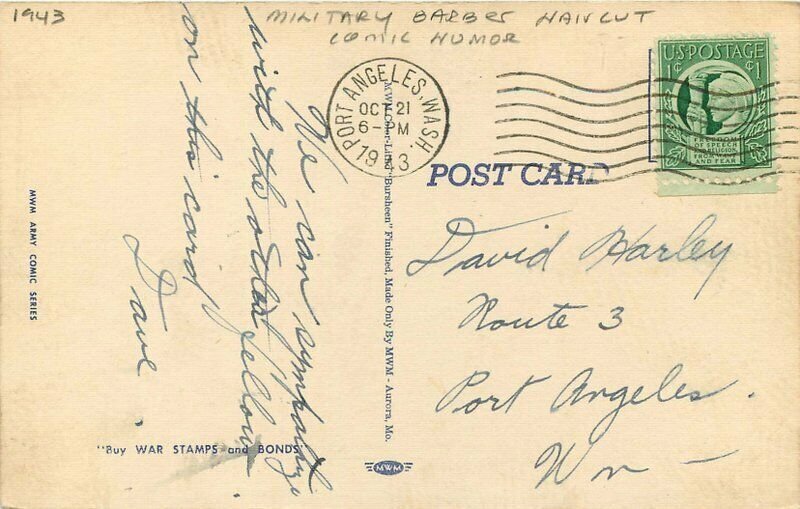 1943
MILITARY BARBER HAIRCUT
COMIC HUMOR
PORT ANGELES, WASH.
OCT 21
6-PM
1943
U.S. POSTAGE
1¢ ¢1
FREEDOM
OF SPEECH
AND RELIGION,
FROM WANT
AND FEAR
POST CARD
We can sympathize
with the other fellow
on this card
Dave.
David Harley
Route 3
Port Angeles.
Wn
MWM Color-Litho "Bursheen" Finished, Made Only By MWM - Aurora, Mo.
MWM ARMY COMIC SERIES
"Buy WAR STAMPS and BONDS"
MWM